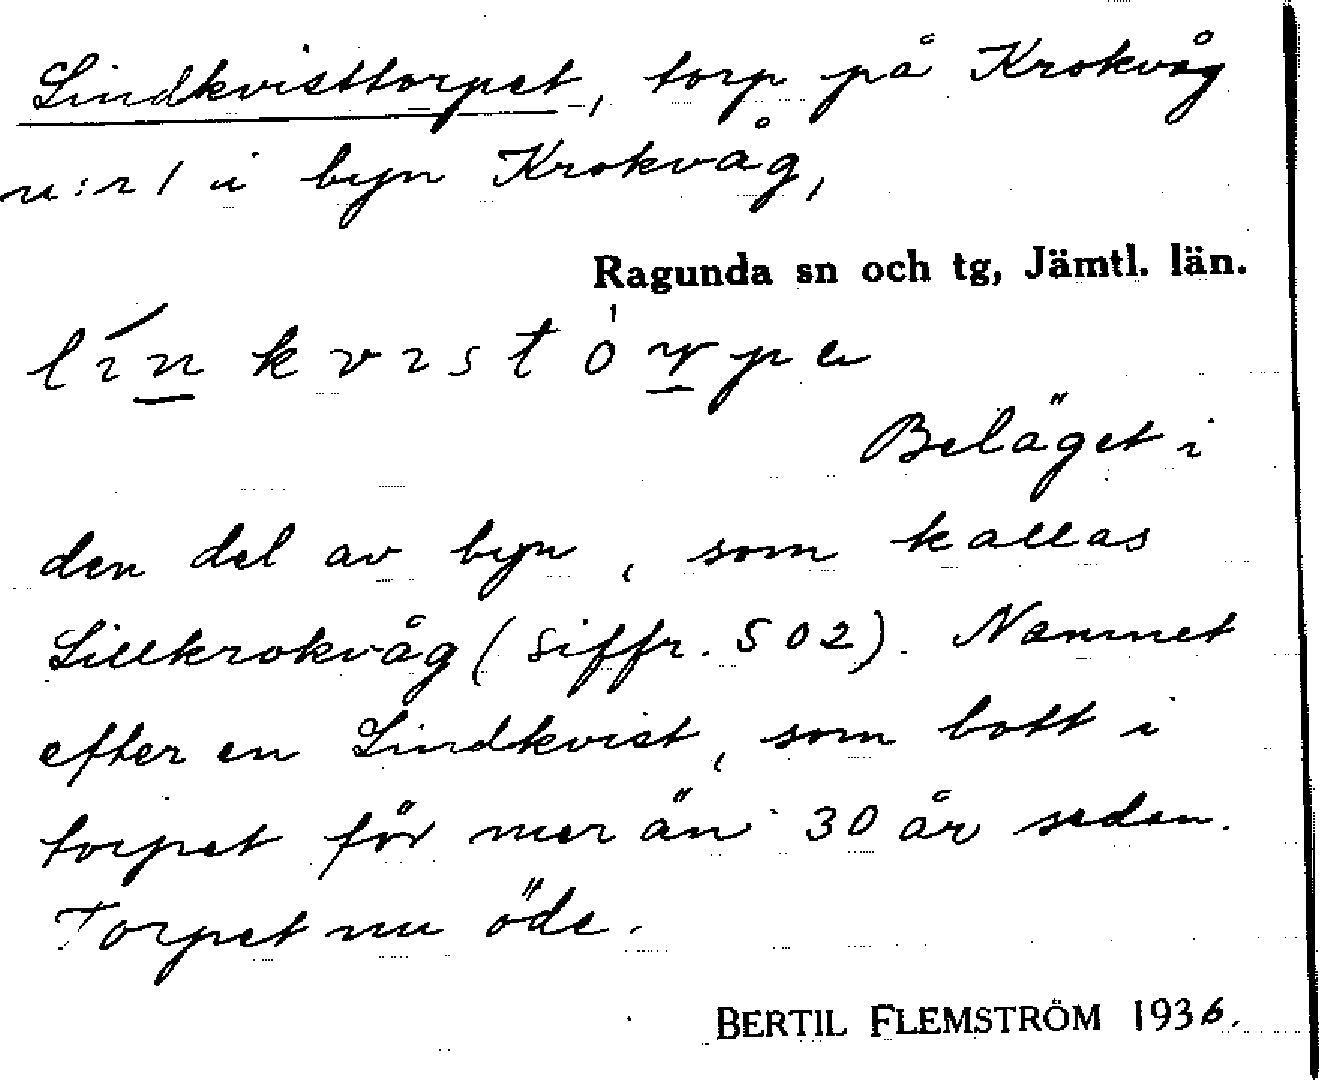 Lindkvisttorpet, torp på Krokvåg
n:r 1 i byn Krokvåg,
Ragunda sn och tg, Jämtl. län.
Beläget i
den del av byn, som kallas
Lillkrokvåg (siffr. 502). Namnet
efter en Lindkvist, som bott i
torpet för mer än 30 år sedan.
Torpet nu öde.
BERTIL FLEMSTRÖM 1936.